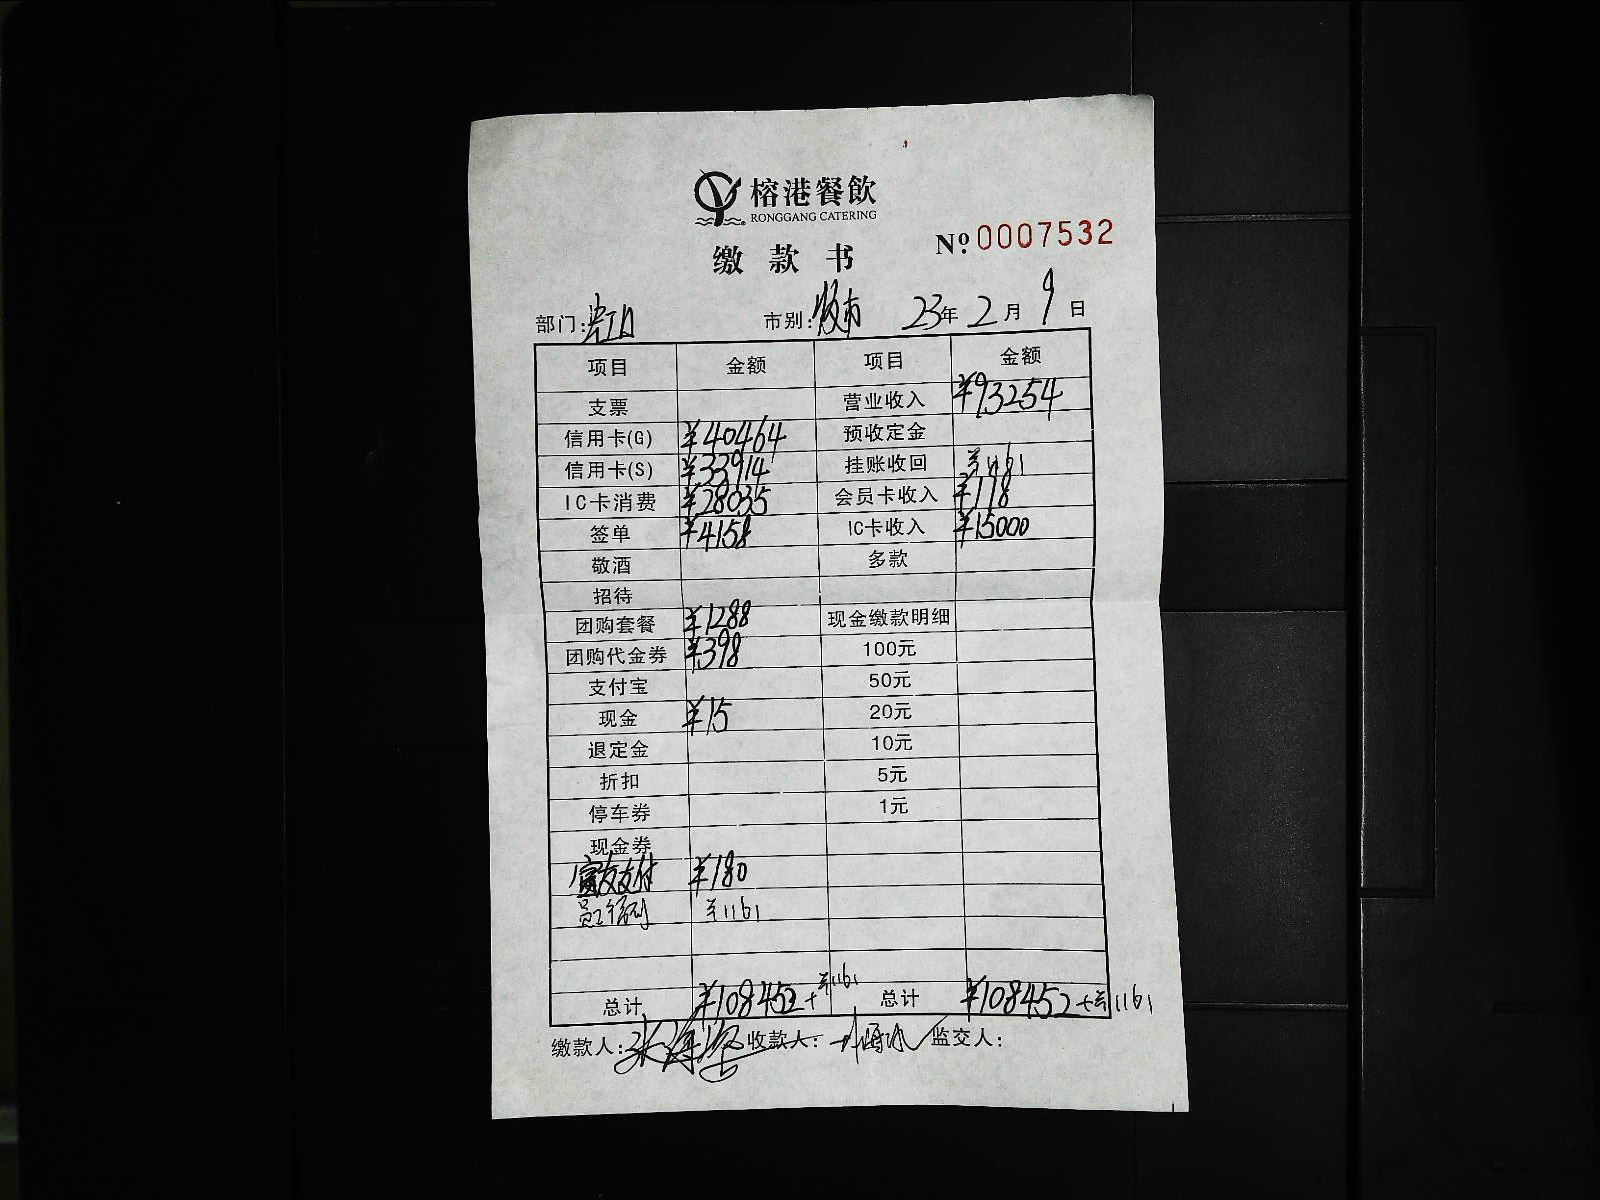 榕港餐飲
RONGGANG CATERING
缴款书
№ 0007532
部门: 虹口 市别: 晚市 23年 2月 9日
项目 金额 项目 金额
支票 营业收入 ¥93254
信用卡(G) ¥40464 预收定金
信用卡(S) ¥33914 挂账收回 ¥1161
IC卡消费 ¥28035 会员卡收入 ¥118
签单 ¥4158 IC卡收入 ¥15000
敬酒 多款
招待
团购套餐 ¥1288 现金缴款明细
团购代金券 ¥398 100元
支付宝 50元
现金 ¥15 20元
退定金 10元
折扣 5元
停车券 1元
现金券
富友支付 ¥180
¥1161
总计 ¥108452+¥1161 总计 ¥108452+¥1161
缴款人: 收款人: 监交人: